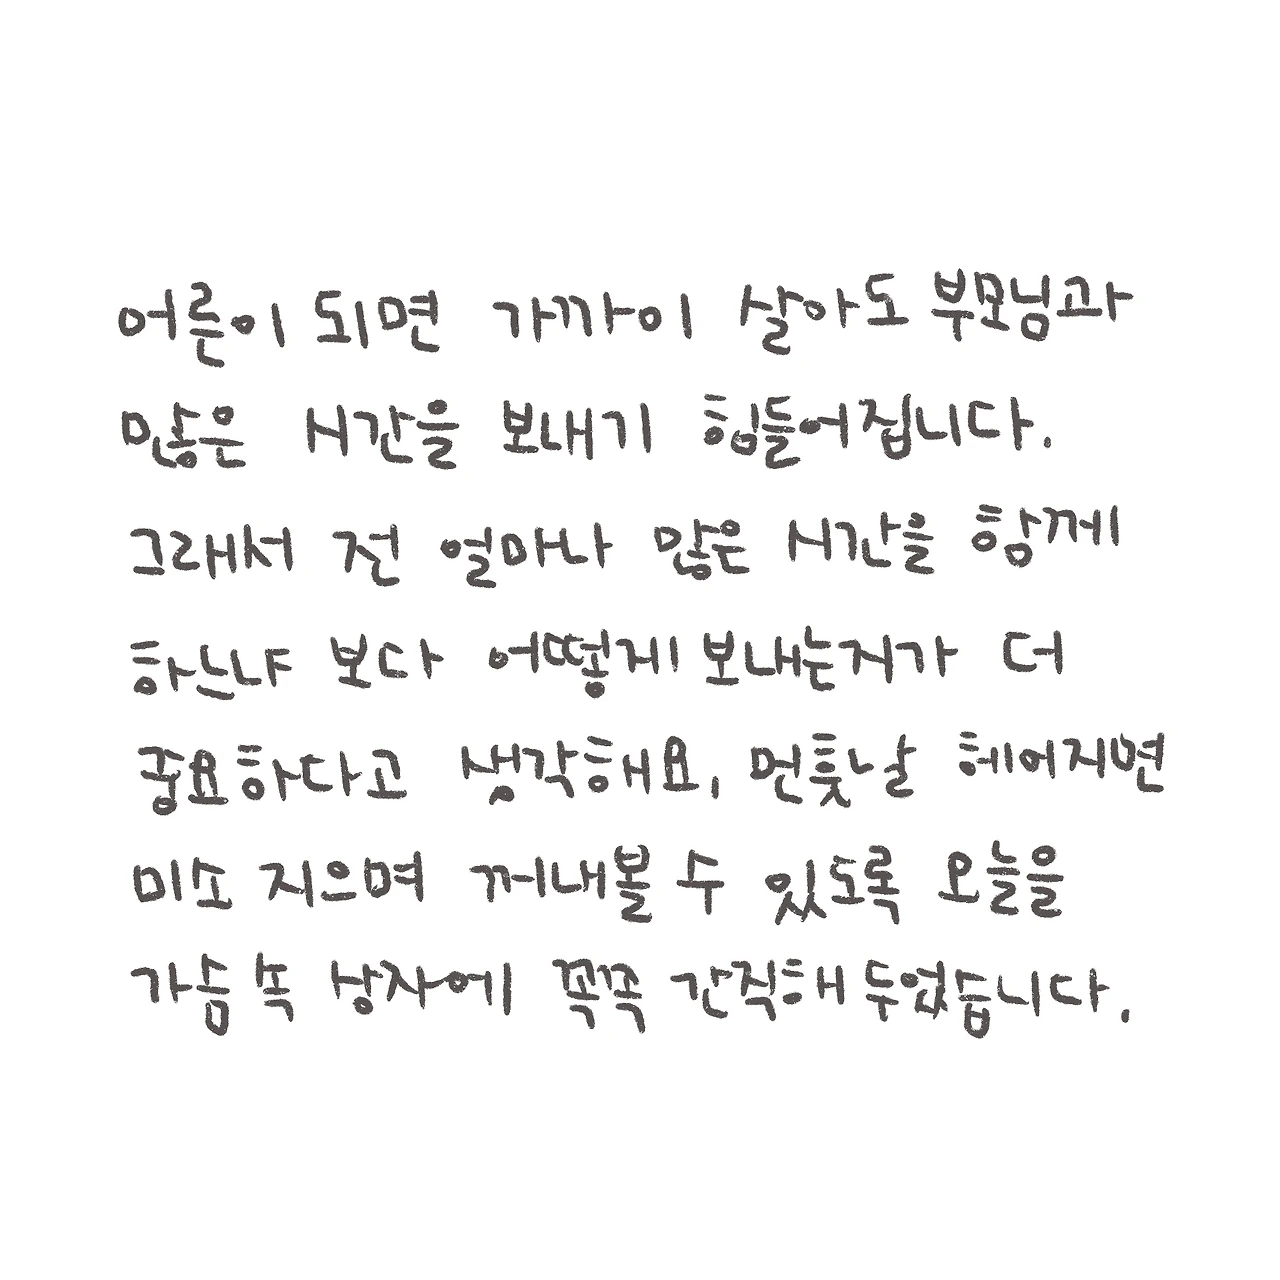 어른이 되면 가까이 살아도 부모님과
많은 시간을 보내기 힘들어집니다.
그래서 전 얼마나 많은 시간을 함께
하느냐 보다 어떻게 보내는지가 더
중요하다고 생각해요, 먼훗날 헤어지면
미소 지으며 꺼내볼 수 있도록 오늘을
가슴 속 상자에 꼭꼭 간직해 두었습니다.